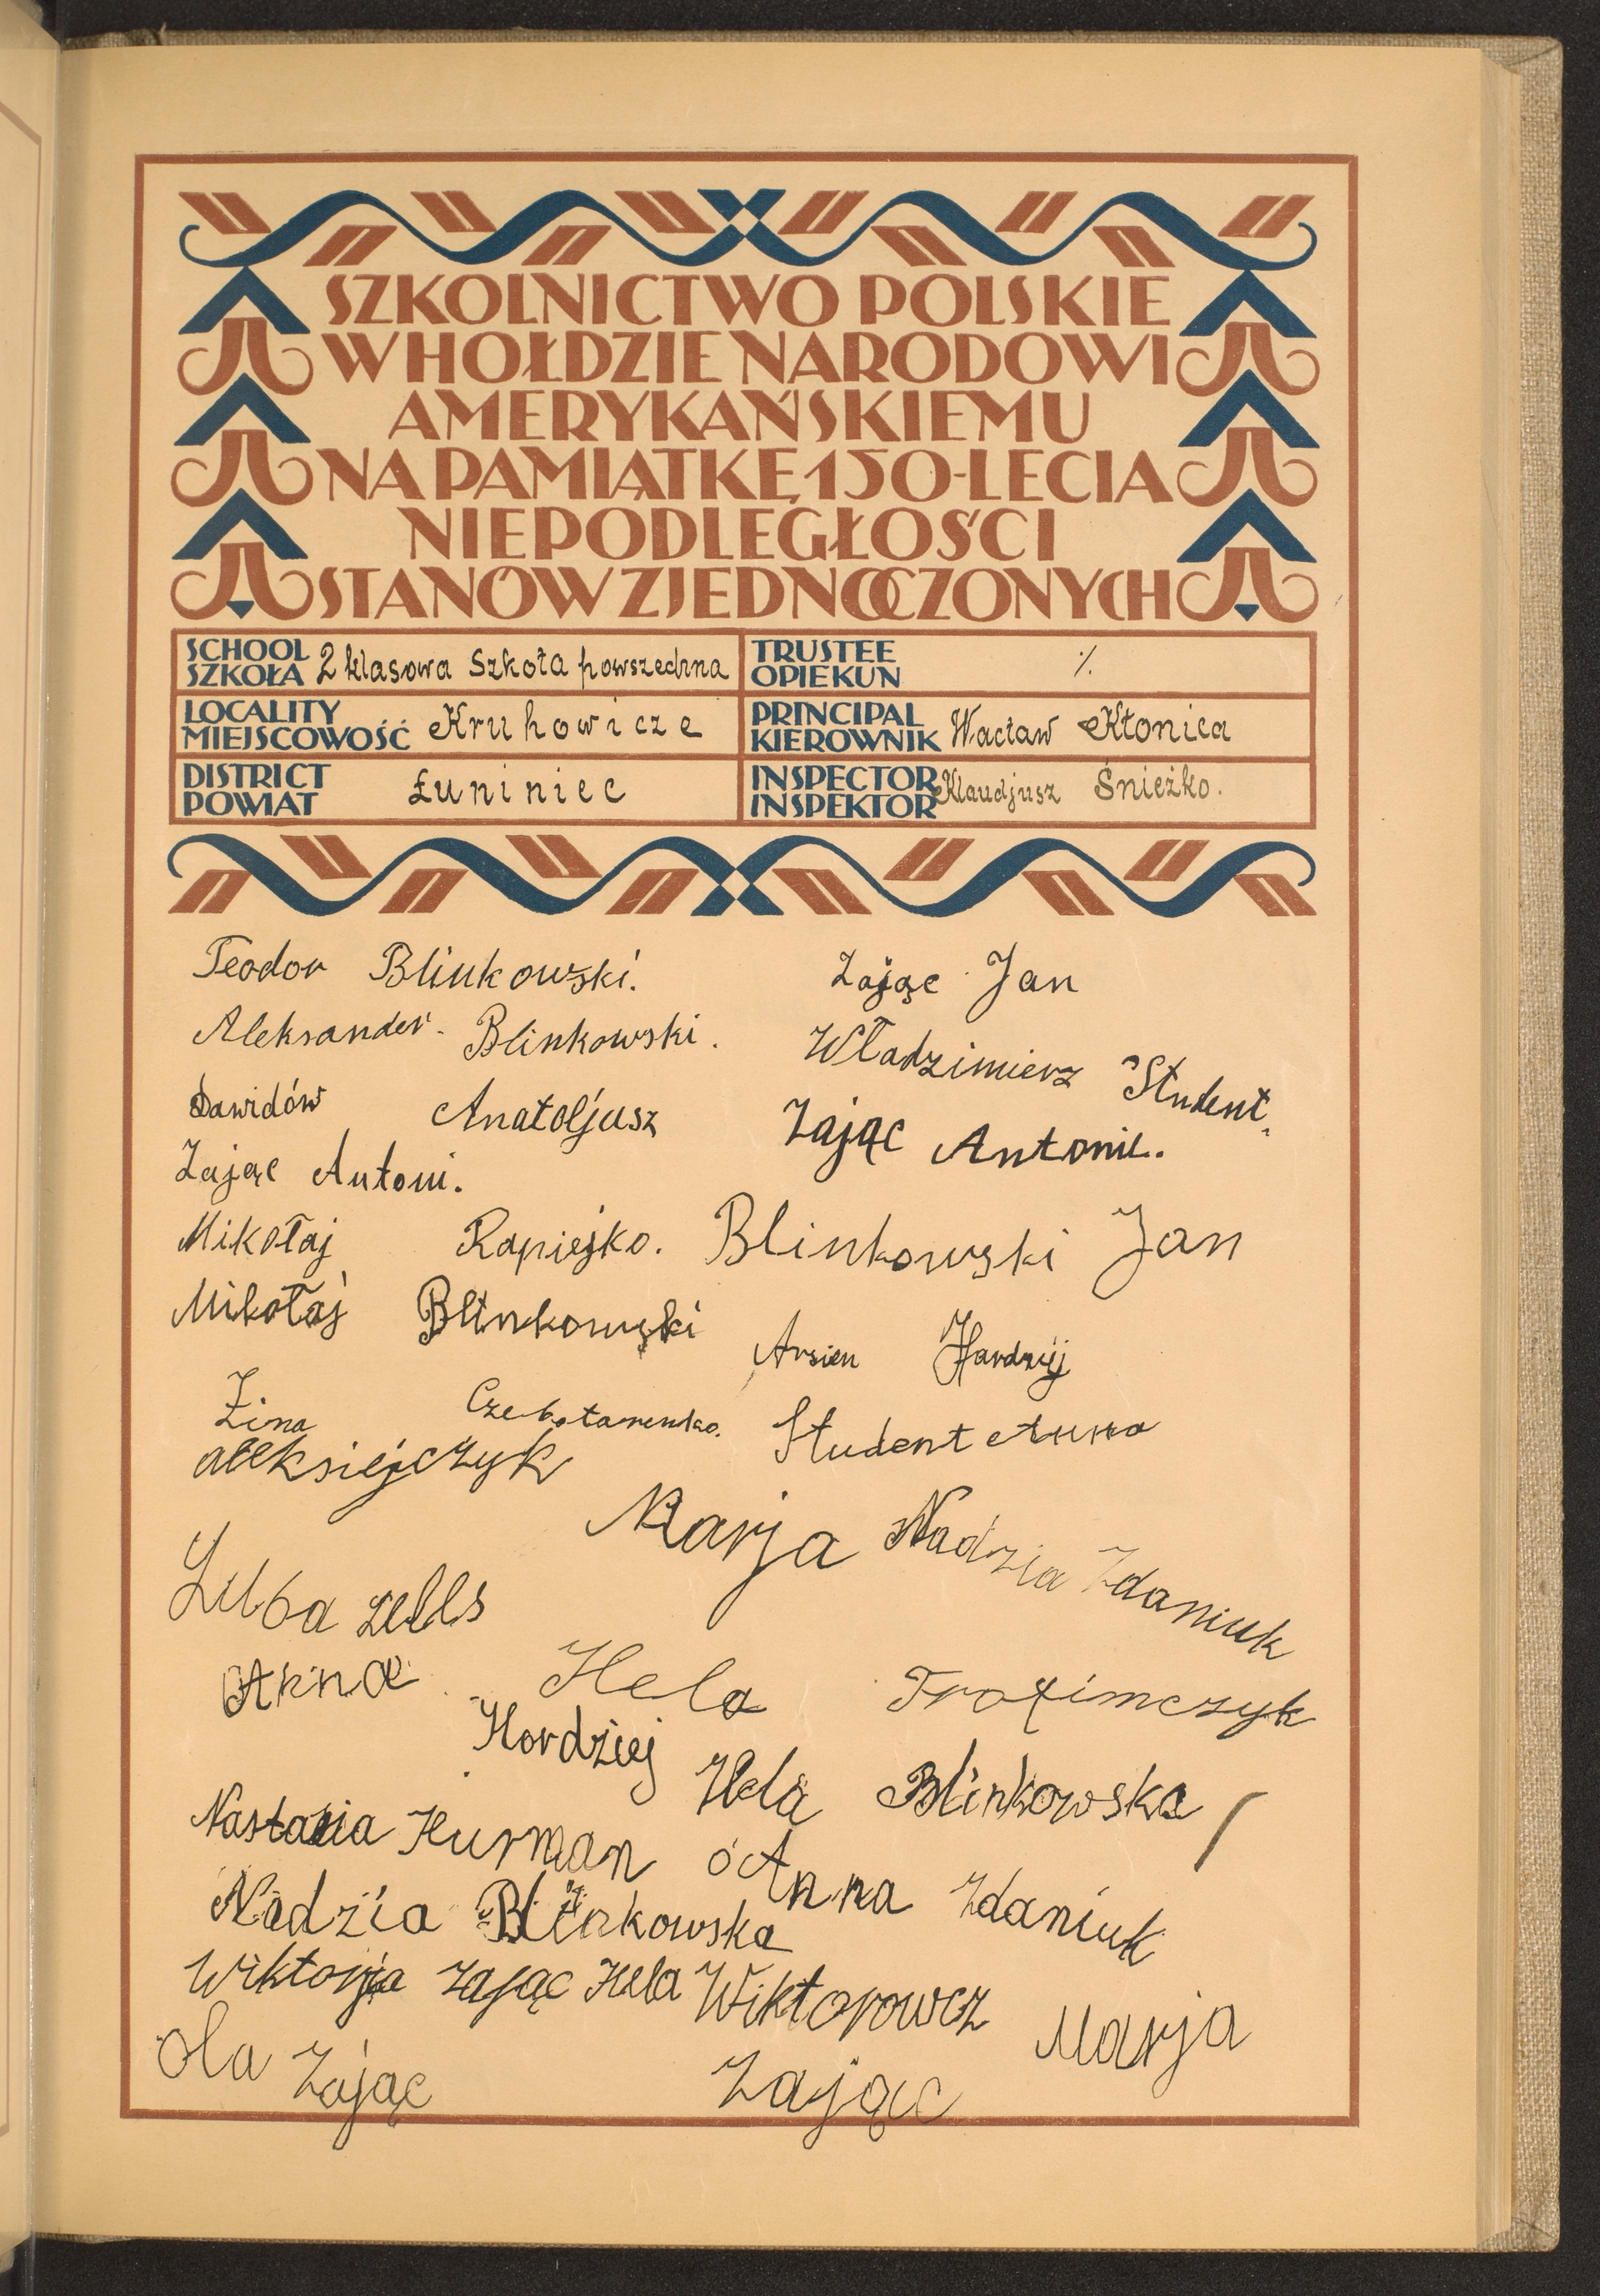 SZKOLNICTWO POLSKIE
W HOŁDZIE NARODOWI
AMERYKAŃSKIEMU
NA PAMIĄTKĘ 150-LECIA
NIEPODLEGŁOŚCI
STANÓW ZJEDNOCZONYCH
SCHOOL
SZKOŁA 2 klasowa Szkoła powszechna
TRUSTEE
OPIEKUN ⁒
LOCALITY
MIEJSCOWOŚĆ Kruhowicze
PRINCIPAL
KIEROWNIK Wacław Kłonica
DISTRICT
POWIAT Łuniniec
INSPECTOR
INSPEKTOR Klaudjusz Śnieżko.
Teodor Blinkowski.
Zając Jan
Aleksander Blinkowski.
Władzimierz Student.
Dawidów Anatoljusz
Zając Antoni.
Zając Antoni.
Mikołaj Rapiejko.
Blinkowski Jan
Mikołaj Blinkowski
Arsien Hardziej
Zina Czebotarenko.
Student Anna
Aleksiejczyk Marja
Nadzia Zdaniuk
Luba
Anna Hordziej
Hela Trofimczyk
Hela Blinkowska
Nastazia Hurman
Anna Zdaniuk
Nadzia Blinkowska
Wiktorja Zając
Hela Wiktorowcz
Ola Zając
Marja Zając